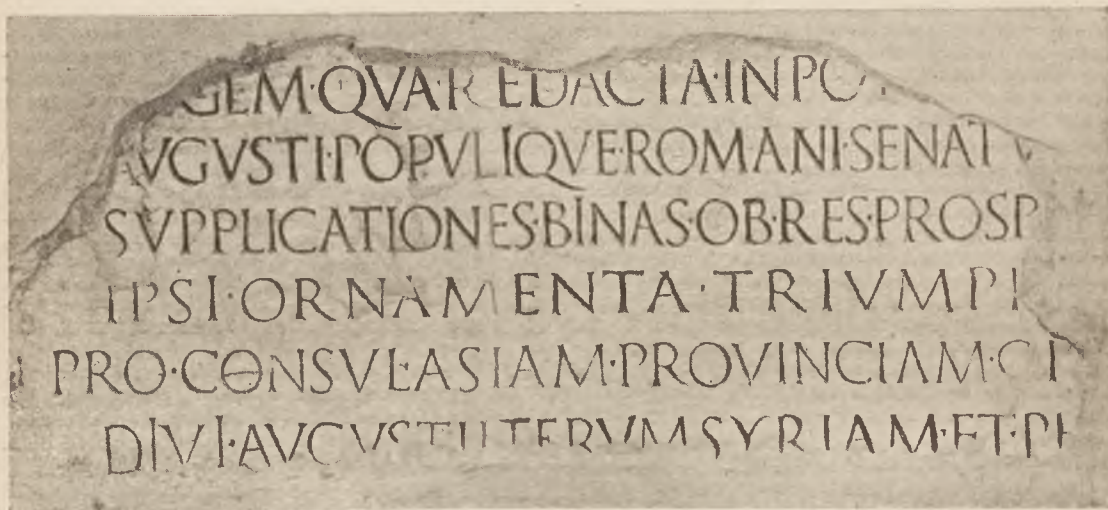 GEM·QVA·REDACTA·IN PO
AVGVSTI·POPVLIQVE·ROMANI·SENATV
SVPPLICATIONES·BINAS·OB·RES·PROSP
IPSI·ORNAMENTA·TRIVMPH
PRO·CONSVL·ASIAM·PROVINCIAM·OP
DIVI·AVGVSTI ITERVM SYRIAM·ET·PH